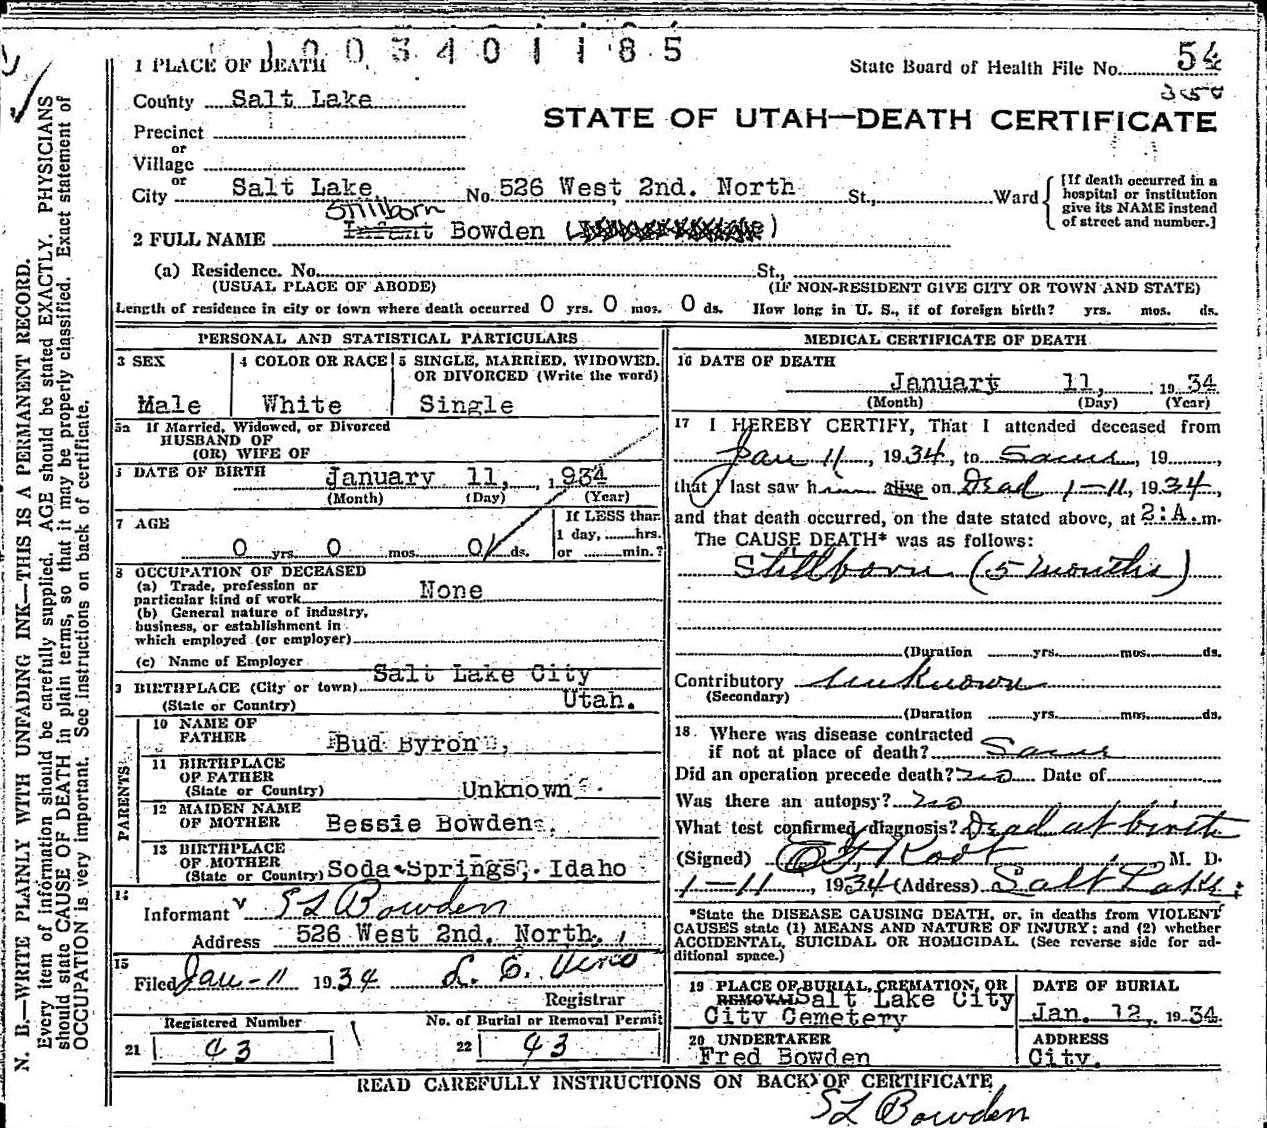 1003401185
1 PLACE OF DEATH
State Board of Health File No. 54
350
County Salt Lake
STATE OF UTAH—DEATH CERTIFICATE
Precinct
or
Village
or
City Salt Lake No. 526 West 2nd. North St., Ward
[If death occurred in a hospital or institution give its NAME instead of street and number.]
Stillborn
2 FULL NAME Infant Bowden
(a) Residence. No. St.,
(USUAL PLACE OF ABODE) (IF NON-RESIDENT GIVE CITY OR TOWN AND STATE)
Length of residence in city or town where death occurred 0 yrs. 0 mos. 0 ds. How long in U. S., if of foreign birth? yrs. mos. ds.
PERSONAL AND STATISTICAL PARTICULARS
3 SEX
Male
4 COLOR OR RACE
White
5 SINGLE, MARRIED, WIDOWED,
OR DIVORCED (Write the word)
Single
5a If Married, Widowed, or Divorced
HUSBAND OF
(OR) WIFE OF
DATE OF BIRTH January 11, 1934
(Month) (Day) (Year)
7 AGE
0 yrs. 0 mos. 0 ds.
If LESS than
1 day, hrs.
or min.?
8 OCCUPATION OF DECEASED
(a) Trade, profession or
particular kind of work None
(b) General nature of industry,
business, or establishment in
which employed (or employer)
(c) Name of Employer
Salt Lake City
9 BIRTHPLACE (City or town)
(State or Country) Utah.
PARENTS
10 NAME OF
FATHER Bud Byron
11 BIRTHPLACE
OF FATHER
(State or Country) Unknown
12 MAIDEN NAME
OF MOTHER Bessie Bowden
13 BIRTHPLACE
OF MOTHER
(State or Country) Soda Springs, Idaho
14
Informant S L Bowden
Address 526 West 2nd. North.
15
Filed Jan-11 1934
Registrar
Registered Number
21 43
No. of Burial or Removal Permit
22 43
MEDICAL CERTIFICATE OF DEATH
16 DATE OF DEATH
January 11, 1934
(Month) (Day) (Year)
17 I HEREBY CERTIFY, That I attended deceased from
Jan 11, 1934, to Same, 19
that I last saw him alive on Dead 1-11, 1934,
and that death occurred, on the date stated above, at 2:A.m.
The CAUSE DEATH* was as follows:
Stillborn (5 months)
(Duration yrs. mos. ds.
Contributory unknown
(Secondary)
(Duration yrs. mos. ds.
18. Where was disease contracted
if not at place of death? Same
Did an operation precede death? no Date of
Was there an autopsy? no
What test confirmed diagnosis? Dead at birth
(Signed) Root, M. D.
1-11, 1934 (Address) Salt Lake
*State the DISEASE CAUSING DEATH, or, in deaths from VIOLENT
CAUSES state (1) MEANS AND NATURE OF INJURY; and (2) whether
ACCIDENTAL, SUICIDAL OR HOMICIDAL. (See reverse side for ad-
ditional space.)
19 PLACE OF BURIAL, CREMATION, OR
REMOVAL Salt Lake City
City Cemetery
DATE OF BURIAL
Jan. 12, 1934
20 UNDERTAKER
Fred Bowden
ADDRESS
City.
READ CAREFULLY INSTRUCTIONS ON BACK OF CERTIFICATE
S L Bowden
N. B.—WRITE PLAINLY WITH UNFADING INK—THIS IS A PERMANENT RECORD.
Every item of information should be carefully supplied. AGE should be stated EXACTLY. PHYSICIANS
should state CAUSE OF DEATH in plain terms, so that it may be properly classified. Exact statement of
OCCUPATION is very important. See instructions on back of certificate.